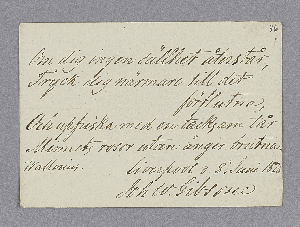 56
Om dig ingen sällhet åter står,
Tryck dig närmare till det
förflutna,
Och uppfriska med en tacksam tår
Minnets rosor utan ånger brutna.
Wallerius.
Liverpool d. 3 Juni 18
Joh W. Gibson